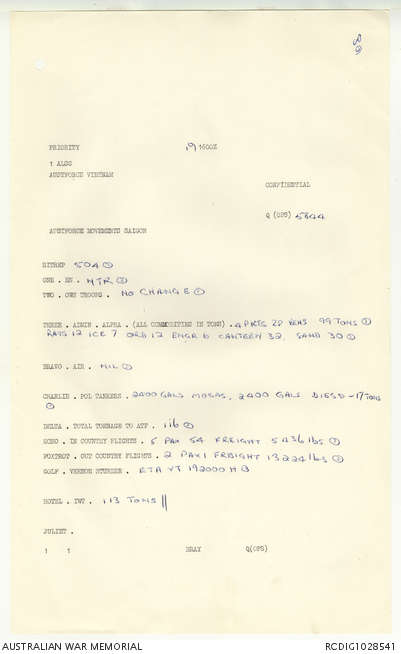 89
PRIORITY 191600Z
1 ALSG
AUSTFORCE VIETNAM
CONFIDENTIAL
Q (OPS) 5844
AUSTFORCE MOVEMENTS SAIGON
SITREP 504 ⊙
ONE . EN. NTR ⊙
TWO . OWN TROOPS . NO CHANGE ⊙
THREE . ADMIN . ALPHA . (ALL COMMODITIES IN TONS) . 4 PKTS 29 VEHS 99 TONS ⊙
RATS 12 ICE 7 ORD 12 ENGR 6 CANTEEN 32 SAND 30 ⊙
BRAVO . AIR . NIL ⊙
CHARLIE . POL TANKERS . 2400 GALS MOGAS, 2400 GALS DIESO - 17 TONS
⊙
DELTA . TOTAL TONNAGE TO ATF . 116 ⊙
ECHO . IN COUNTRY FLIGHTS . 5 PAX 54 FREIGHT 5436 lbs ⊙
FOXTROT . OUT COUNTRY FLIGHTS . 2 PAX 1 FREIGHT 13224 lbs ⊙
GOLF . VERNON STURDEE . ETA VT 192000 H ⊙
HOTEL . IWT . 113 TONS ||
JULIET .
1 1 BRAY Q(OPS)
AUSTRALIAN WAR MEMORIAL RCDIG1028541